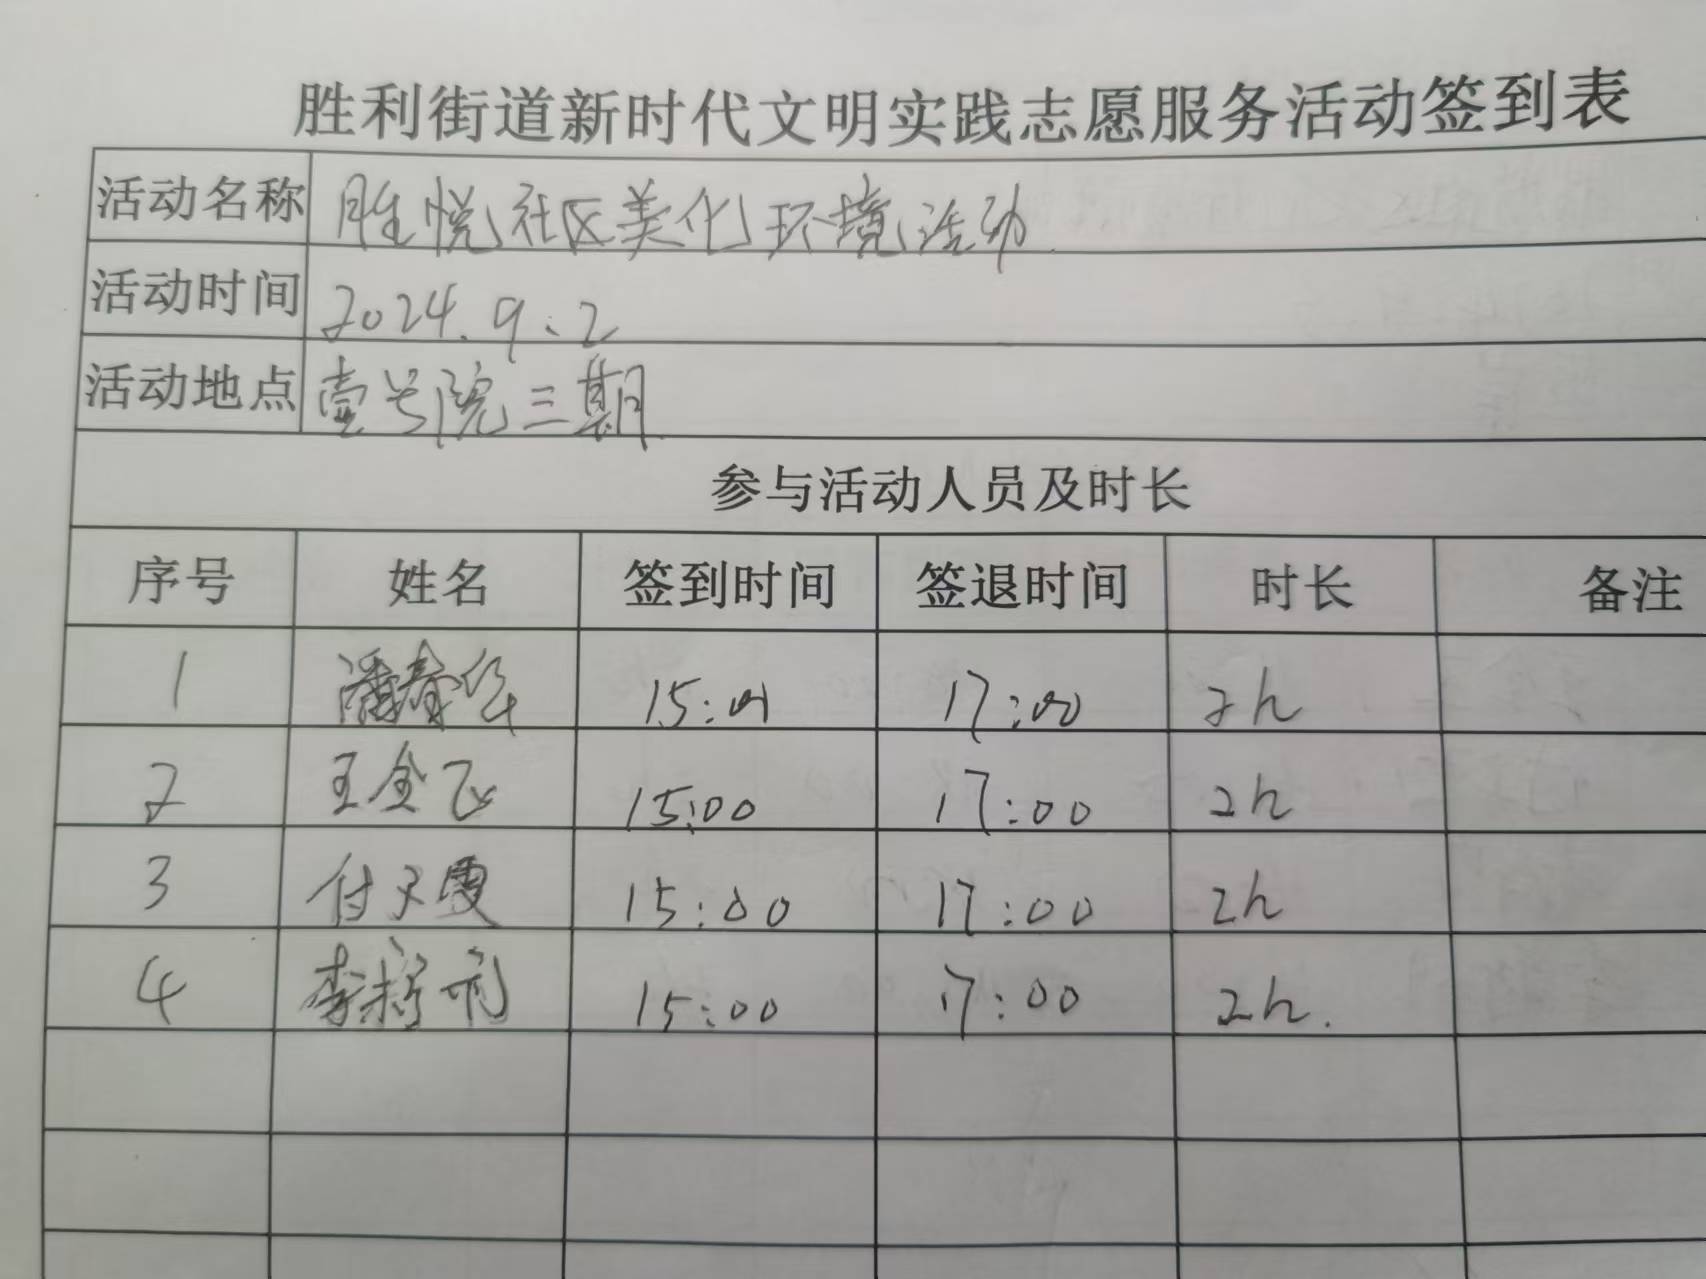 胜利街道新时代文明实践志愿服务活动签到表
活动名称 胜悦社区美化环境活动
活动时间 2024.9.2
活动地点 壹号院三期
参与活动人员及时长
序号 姓名 签到时间 签退时间 时长 备注
1 潘春华 15:00 17:00 2h
2 王全飞 15:00 17:00 2h
3 付 15:00 17:00 2h
4 李 15:00 17:00 2h.